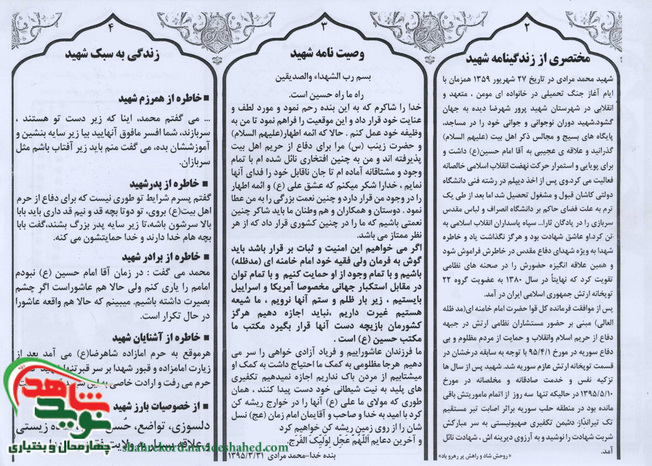 ۲
مختصری از زندگینامه شهید
شهید محمد مرادی در تاریخ ۲۷ شهریور ۱۳۵۹ همزمان با
ایام آغاز جنگ تحمیلی در خانواده ای مومن ، متعهد و
انقلابی در شهرستان شهید پرور شهرضا دیده به جهان
گشود.شهید دوران نوجوانی و جوانی خود را در مساجد،
پایگاه های بسیج و مجالس ذکر اهل بیت (علیهم السلام)
گذرانید و علاقه ی عجیبی به آقا امام حسین(ع) داشت و
برای پویایی و استمرار حرکت نهضت انقلاب اسلامی خالصانه
فعالیت می کرد.وی پس از اخذ دیپلم در رشته فنی دانشگاه
دولتی کاشان قبول و مشغول تحصیل شد اما بعد از طی یک
ترم به علت فضای حاکم بر دانشگاه انصراف و لباس مقدس
سربازی را در یادگان ثارا... سپاه پاسداران انقلاب اسلامی به
تن کرد.او عاشق شهادت بود و هرگز نگذاشت یاد و خاطره
شهدا به ویژه شهدای دفاع مقدس در خاطرش فراموش شود
و همین علاقه انگیزه حضورش را در صحنه های نظامی
تقویت کرد که نهایتاً در سال ۱۳۸۰ به عضویت گروه ۲۲
توپخانه ارتش جمهوری اسلامی ایران در آمد.
پس از موافقت فرمانده کل قوا حضرت امام خامنه ای(مد ظله
العالی) مبنی بر حضور مستشاران نظامی ارتش در جبهه
دفاع از حریم اسلام وانقلاب و حمایت از مردم مظلوم و بی
دفاع سوریه در مورخ ۹۵/۴/۱ با توجه به سابقه درخشان در
قسمت توپخانه ارتش عازم سوریه شد. شهید پس از سال ها
تزکیه نفس و خدمت صادقانه و مخلصانه در مورخ
۱۳۹۵/۵/۱۰ در حالیکه تنها سه روز از اتمام ماموریتش باقی
مانده بود در منطقه حلب سوریه براثر اصابت تیر مستقیم
تک تیرانداز دشمن تکفیری صهیونیستی به سر مبارکش
شربت شهادت را نوشید و به آرزوی دیرینه اش ، شهادت نائل
آمد.
« روحش شاد و راهش پر رهرو باد»
۳
وصیت نامه شهید
بسم رب الشهداء والصدیقین
راه ما راه حسین است.
خدا را شاکرم که به این بنده رحم نمود و مورد لطف و
عنایت خود قرار داد و این موقعیت را فراهم نمود تا من به
وظیفه خود عمل کنم . حالا که ائمه اطهار(علیهم السلام)
و حضرت زینب (س) مرا برای دفاع از حریم اهل بیت
پذیرفته اند و من به چنین افتخاری نائل شده ام با تمام
وجود و مشتاقانه آماده ام تا جان ناقابل خود را فدای آنها
نمایم ، خدارا شکر میکنم که عشق علی (ع) و ائمه اطهار
را در وجود من قرار دارد و چنین نعمت بزرگی را به من عطا
نمود . دوستان و همکاران و هم وطنان ما باید شاکر چنین
نعمتی باشیم که ما را در چنین کشوری قرار داد که از هر
نظر ممتاز می باشد.
اگر می خواهیم این امنیت و ثبات بر قرار باشد باید
گوش به فرمان ولی فقیه خود امام خامنه ای (مدظله)
باشیم و با تمام وجود از او حمایت کنیم و با تمام توان
در مقابل استکبار جهانی مخصوصا آمریکا و اسراییل
بایستیم ، زیر بار ظلم و ستم آنها نرویم ، ما شیعه
هستیم غیرت داریم ،نباید اجازه دهیم هرگز
کشورمان بازیچه دست آنها قرار بگیرد مکتب ما
مکتب حسین (ع) است .
ما فرزندان عاشوراییم و فریاد آزادی خواهی را سر می
دهیم هرجا مظلومی به کمک ما احتیاج داشت به کمک او
میشتابیم از مردن باک نداریم اجازه نمیدهیم تکفیری
های پلید به نیت شیطانی خود دست پیدا کنند ، همان
طوری که مولای ما علی (ع) آنها را در خوارج ریشه کن
کرد با امید به خدا و صاحب و آقایمان امام زمان (عج) نسل
شان را از روی زمین ریشه کن خواهیم کرد
و آخرین دعایم اللّهُمَّ عَجِّل لِوَلیِّکَ الفَرَج.
بنده خدا-محمد مرادی ۱۳۹۵/۳/۳۱
۴
زندگی به سبک شهید
خاطره از همرزم شهید
... می گفتم محمد، اینا که زیر دست تو هستند ،
سربازند، شما افسر مافوق آنهایید بیا زیر سایه بنشین و
آموزششان بده، می گفت منم باید زیر آفتاب باشم مثل
سربازان.
خاطره از پدرشهید
گفتم پسرم شرایط تو طوری نیست که برای دفاع از حرم
اهل بیت(ع) بروی، تو دوتا بچه قد و نیم قد داری باید بابا
بالا سرشون باشه،تا زیر سایه پدر بزرگ بشند،گفت بابا
بچه هام خدا دارند و خدا حمایتشون می کنه.
خاطره از برادر شهید
محمد می گفت : در زمان آقا امام حسین (ع) نبودم
امامم را یاری کنم ولی حالا هم عاشوراست اگر چشم
بصیرت داشته باشیم. میبینم که حالا هم واقعه عاشورا
در حال تکرار است.
خاطره از آشنایان شهید
هرموقع به حرم امازاده شاهرضا(ع) می آمد بعد از
زیارت امامزاده و قبور شهدا بر سر قبر
حرم می رفت و ارادت خاصی به
از خصوصیات بارز شهید
دلسوزی، تواضع، حسن زیستی
و علاقه بسیار به ولایت
نوید شاهد
چهارمحال و بختیاری
shahrekord.navideshahed.com